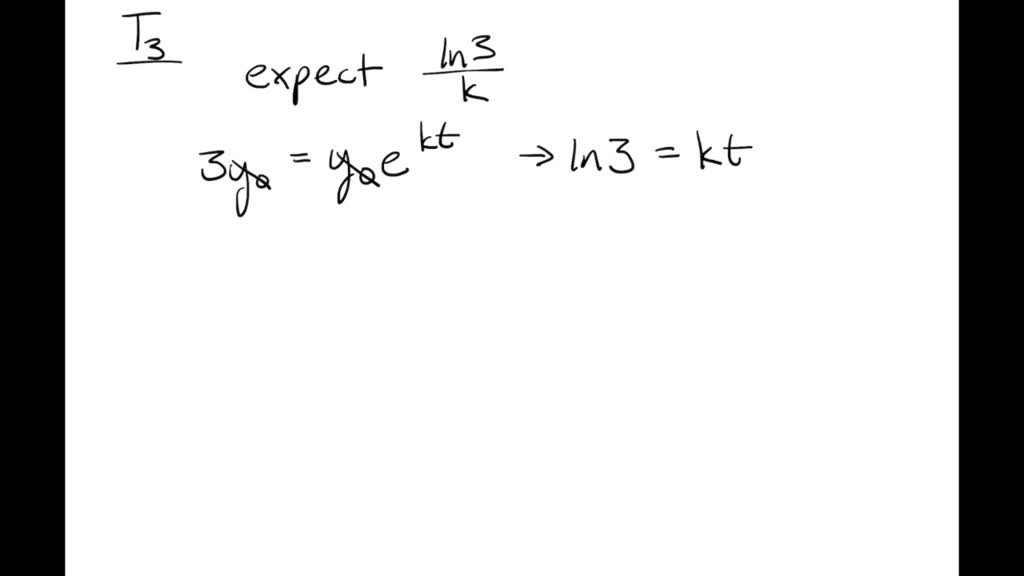 T₃
expect ln3/k
3y₀ = y₀e^kt → ln3 = kt